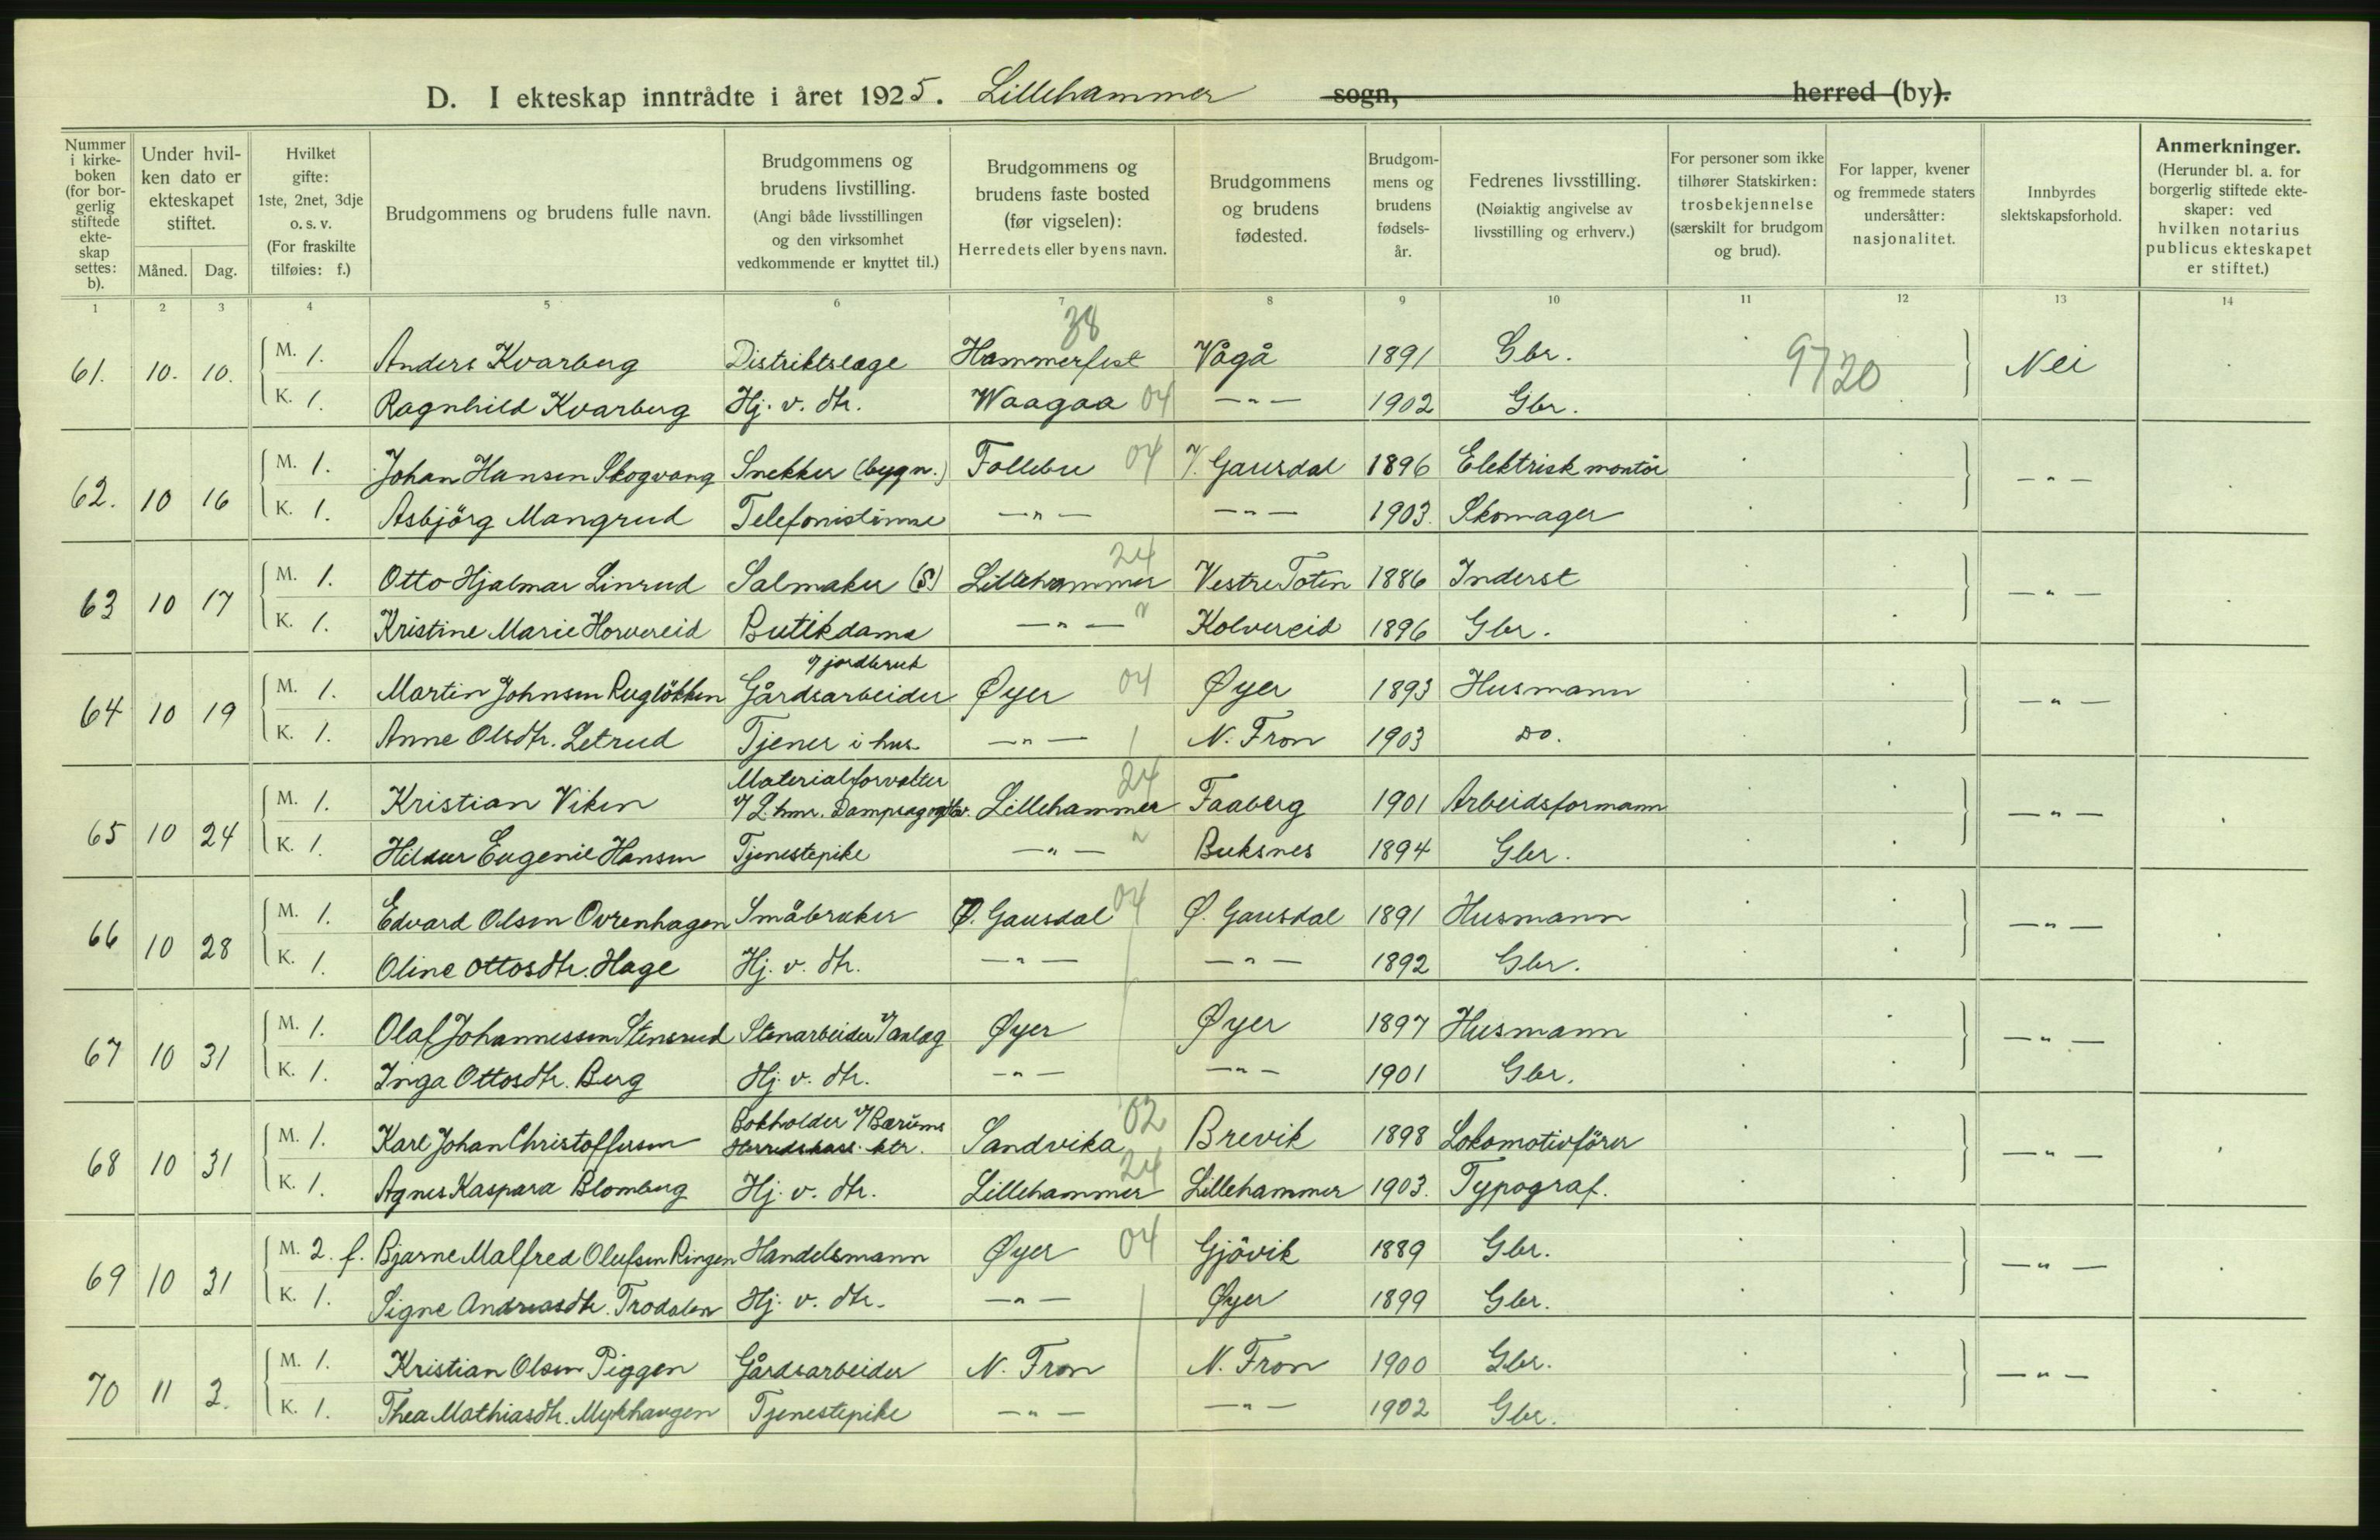 D. I ekteskap inntrådte i året 1925. Lillehammer sogn, herred (by).
Nummer i kirkeboken (for borgerlig stiftede ekteskap settes: b).
Under hvilken dato er ekteskapet stiftet.
Måned. Dag.
Hvilket gifte: 1ste, 2net, 3dje o. s. v. (For fraskilte tilføies: f.)
Brudgommens og brudens fulle navn.
Brudgommens og brudens livstilling. (Angi både livsstillingen og den virksomhet vedkommende er knyttet til.)
Brudgommens og brudens faste bosted (før vigselen): Herredets eller byens navn.
Brudgommens og brudens fødested.
Brudgommens og brudens fødselsår.
Fedrenes livsstilling. (Nøiaktig angivelse av livsstilling og erhverv.)
For personer som ikke tilhører Statskirken: trosbekjennelse (særskilt for brudgom og brud).
For lapper, kvener og fremmede staters undersåtter: nasjonalitet.
Innbyrdes slektskapsforhold.
Anmerkninger. (Herunder bl. a. for borgerlig stiftede ekteskaper: ved hvilken notarius publicus ekteskapet er stiftet.)
1 2 3 4 5 6 7 8 9 10 11 12 13 14
38
61. 10. 10. M. 1. Anders Kvarberg Distriktslæge Hammerfest Vågå 1891 Gbr. 9720 Nei
K. 1. Ragnhild Kvarberg Hj. v. dtr. Waagaa 04 —"— 1902 Gbr.
62. 10 16 M. 1. Johan Hansen Skogvang Snekker (bygn.) Follebu 04 V. Gausdal 1896 Elektrisk montör —"—
K. 1. Asbjörg Mangrud Telefonistinne —"— —"— 1903. Skomager
24
63 10 17 M. 1. Otto Hjalmar Linrud Salmaker (S) Lillehammer Vestre Toten 1886 Inderst —"—
K. 1. Kristine Marie Horvereid Butikdame —"— " Kolvereid 1896 Gbr.
v/ jordbruk
64 10 19 M. 1. Martin Johnsen Ruglökken Gårdsarbeider Øyer 04 Øyer 1893 Husmann —"—
K. 1. Anne Olsdtr. Letrud Tjener i hus —"— N. Fron 1903 Do.
Materialforvalter 24
65 10 24 M. 1. Kristian Viken v/ L.hmr. Dampsag og Høv. Lillehammer Faaberg 1901 Arbeidsformann —"—
K. 1. Hildur Eugenie Hansen Tjenestepike —"— " Buksnes 1894 Gbr.
66 10 28 M. 1. Edvard Olsen Ovrenhagen Småbruker Ø. Gausdal 04 Ø. Gausdal 1891 Husmann —"—
K. 1. Oline Ottosdtr. Hage Hj. v. dtr. —"— —"— 1892 Gbr.
67 10 31 M. 1. Olaf Johannessen Stensrud Stenarbeider v/ anlæg Øyer Øyer 1897 Husmann —"—
K. 1. Inga Ottosdtr. Berg Hj. v. dtr. —"— —"— 1901 Gbr.
Bokholder v/ Bærums 02
68 10 31 M. 1. Karl Johan Christoffersen Herredskass. ktr. Sandvika Brevik 1898 Lokomotivförer —"—
24
K. 1. Agnes Kaspara Blomberg Hj. v. dtr. Lillehammer Lillehammer 1903. Typograf.
69 10 31 M. 2. f. Bjarne Malfred Olufsen Ringen Handelsmann Øyer 04 Gjövik 1889 Gbr. —"—
K. 1. Signe Andreasdtr. Trodalen Hj. v. dtr. —"— Øyer 1899 Gbr.
70 11 2. M. 1. Kristian Olsen Piggen Gårdsarbeider N. Fron N. Fron 1900 Gbr. —"—
K. 1. Thea Mathiasdtr. Mykhaugen Tjenestepike —"— —"— 1902 Gbr.